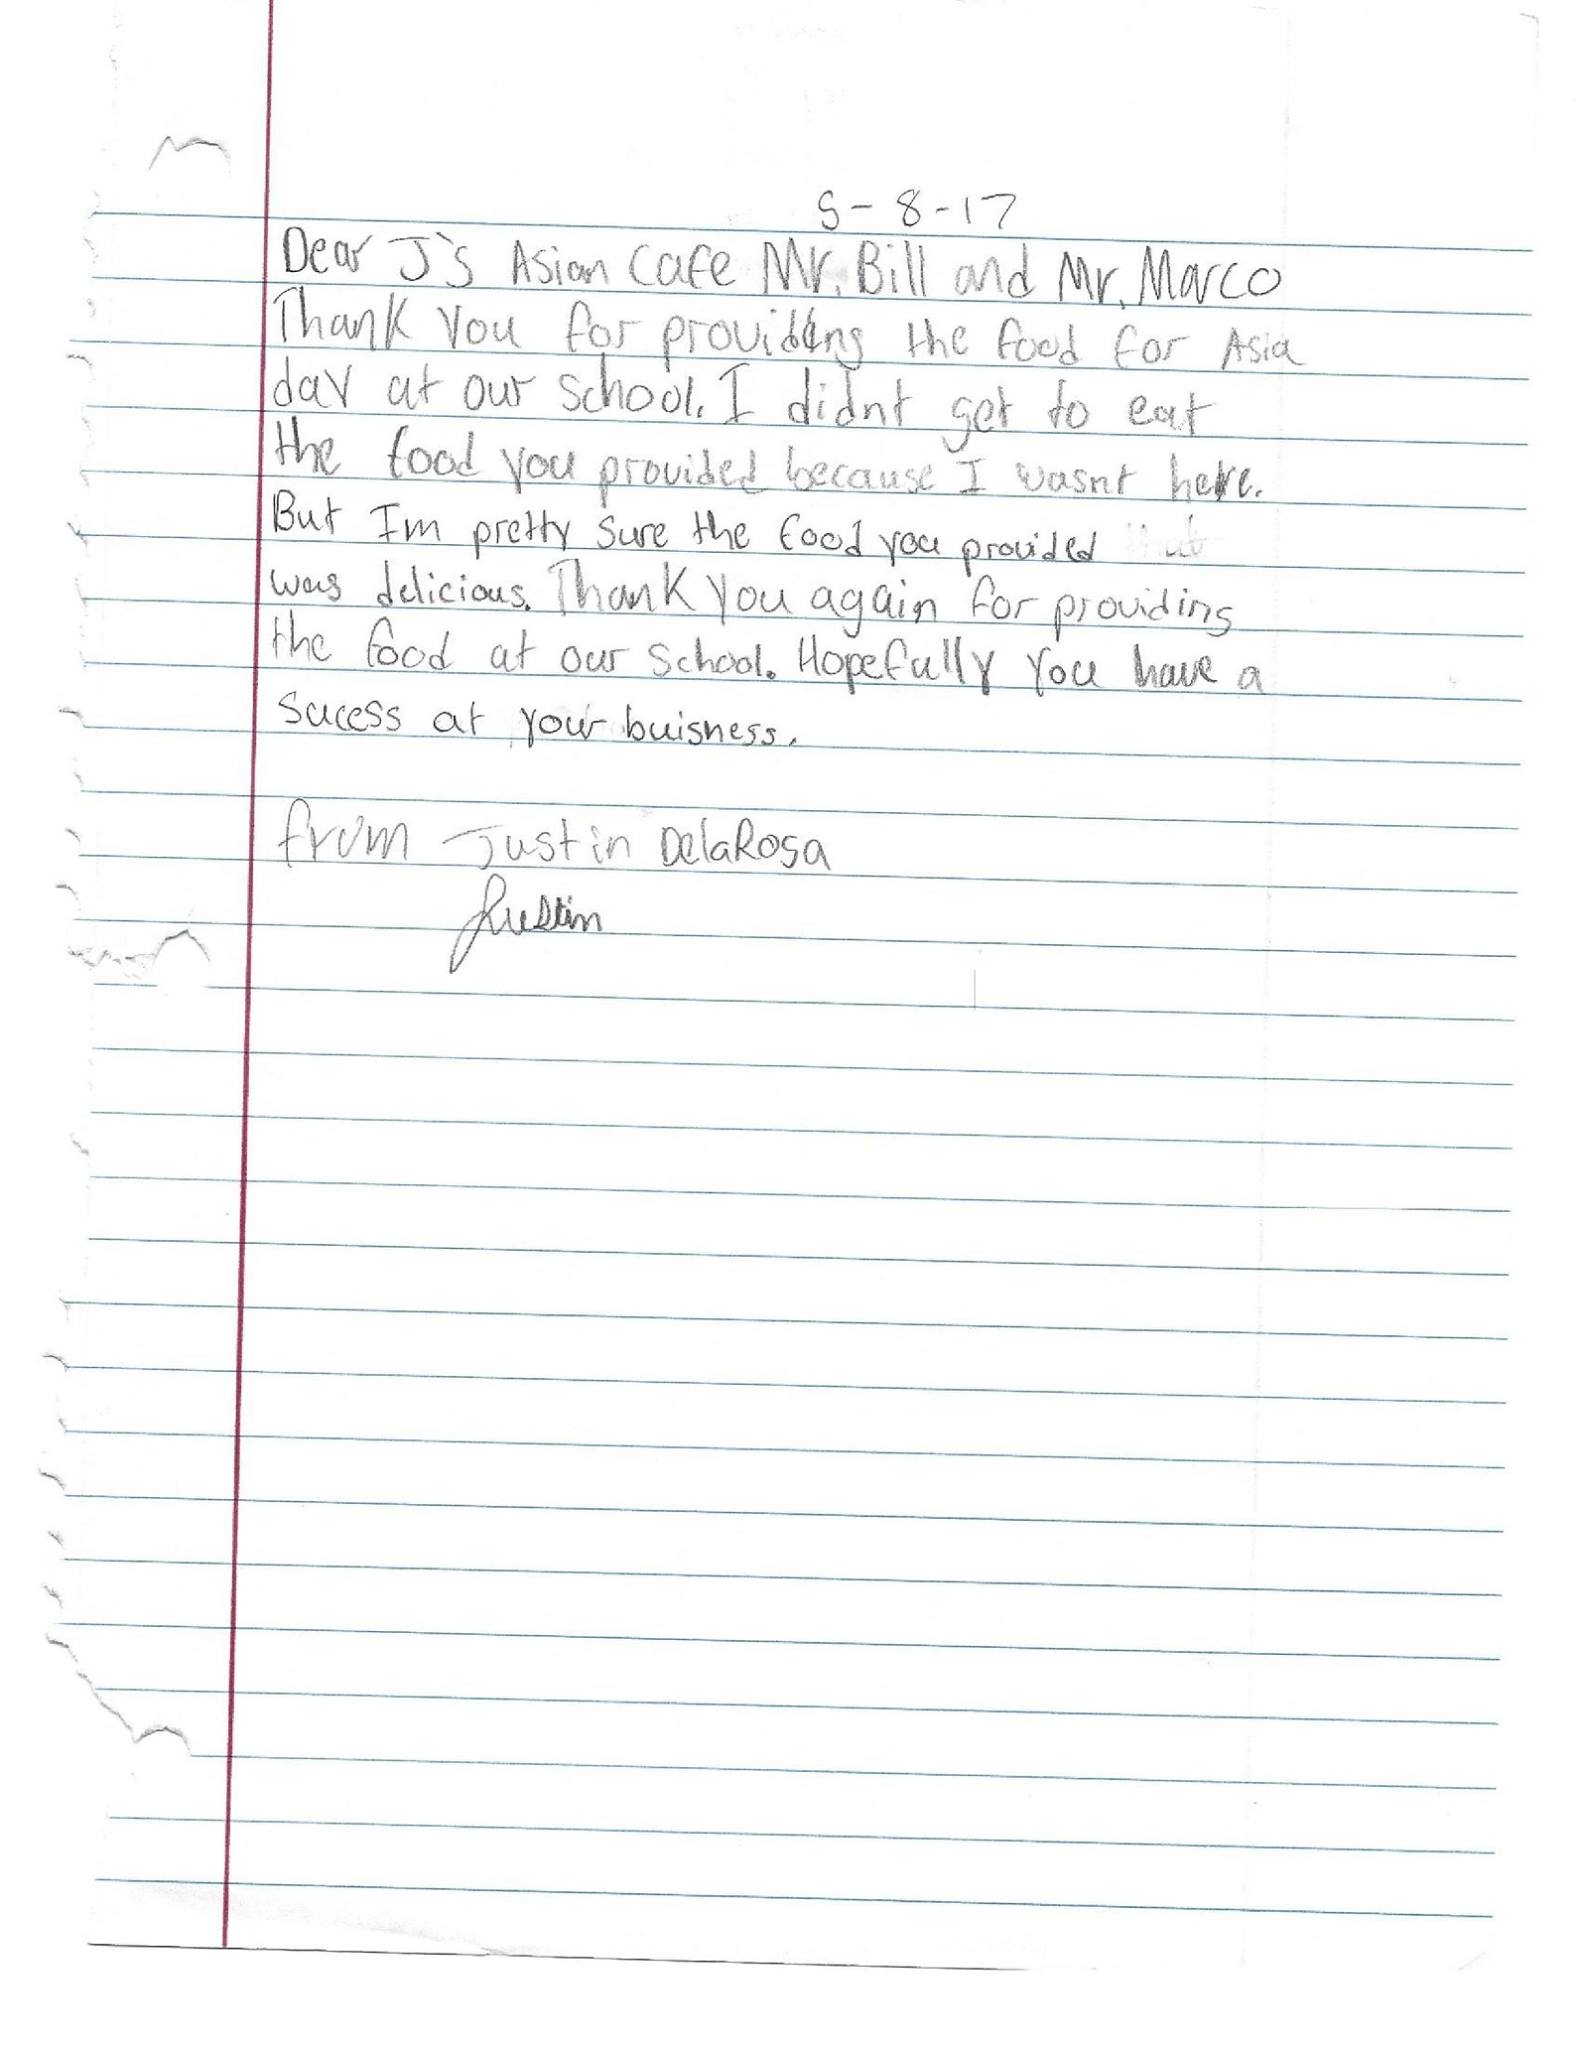 5-8-17
Dear J's Asian Cafe Mr. Bill and Mr. Marco
Thank you for providing the food for Asia
day at our school. I didnt get to eat
the food you provided because I wasnt here.
But Im pretty sure the food you provided
was delicious. Thank you again for providing
the food at our school. Hopefully you have a
sucess at your buisness.
from Justin DelaRosa
Justin